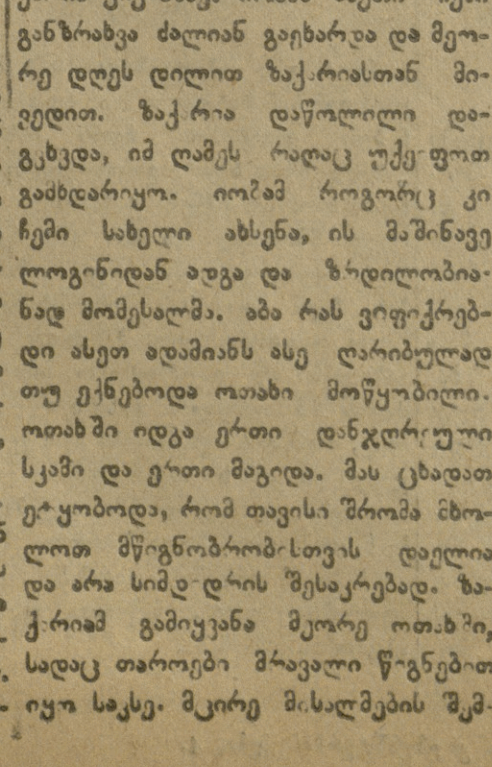 განზრახვა ძალიან გაეხარდა და მეო-
რე დღეს დილით ზაქარიასთან მი-
ვედით. ზაქარია დაწოლილი და-
გვხვდა, იმ ღამეს რაღაც უქეიფოთ
გამხდარიყო. იობამ როგორც კი
ჩემი სახელი ახსენა, ის მაშინავე
ლოგინიდან ადგა და ზრდილობია-
ნად მომესალმა. აბა რას ვიფიქრებ-
დი ასეთ ადამიანს ასე ღარიბულად
თუ ექნებოდა ოთახი მოწყობილი.
ოთახში იდგა ერთი დანჯღრეული
სკამი და ერთი მაგიდა. მას ცხადათ
ეტყობოდა, რომ თავისი შრომა მხო-
ლოთ მწიგნობრობისთვის დაელია
და არა სიმდიდრის შესაკრებად. ზა-
ქარიამ გამიყვანა მეორე ოთახში,
სადაც თაროები მრავალი წიგნებით
იყო სავსე. მცირე მისალმების შემ-